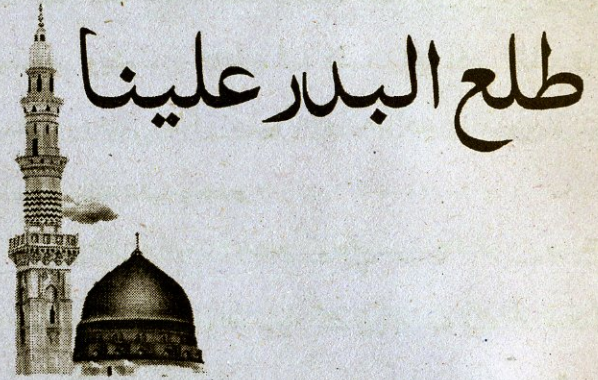 طلع البدر علينا